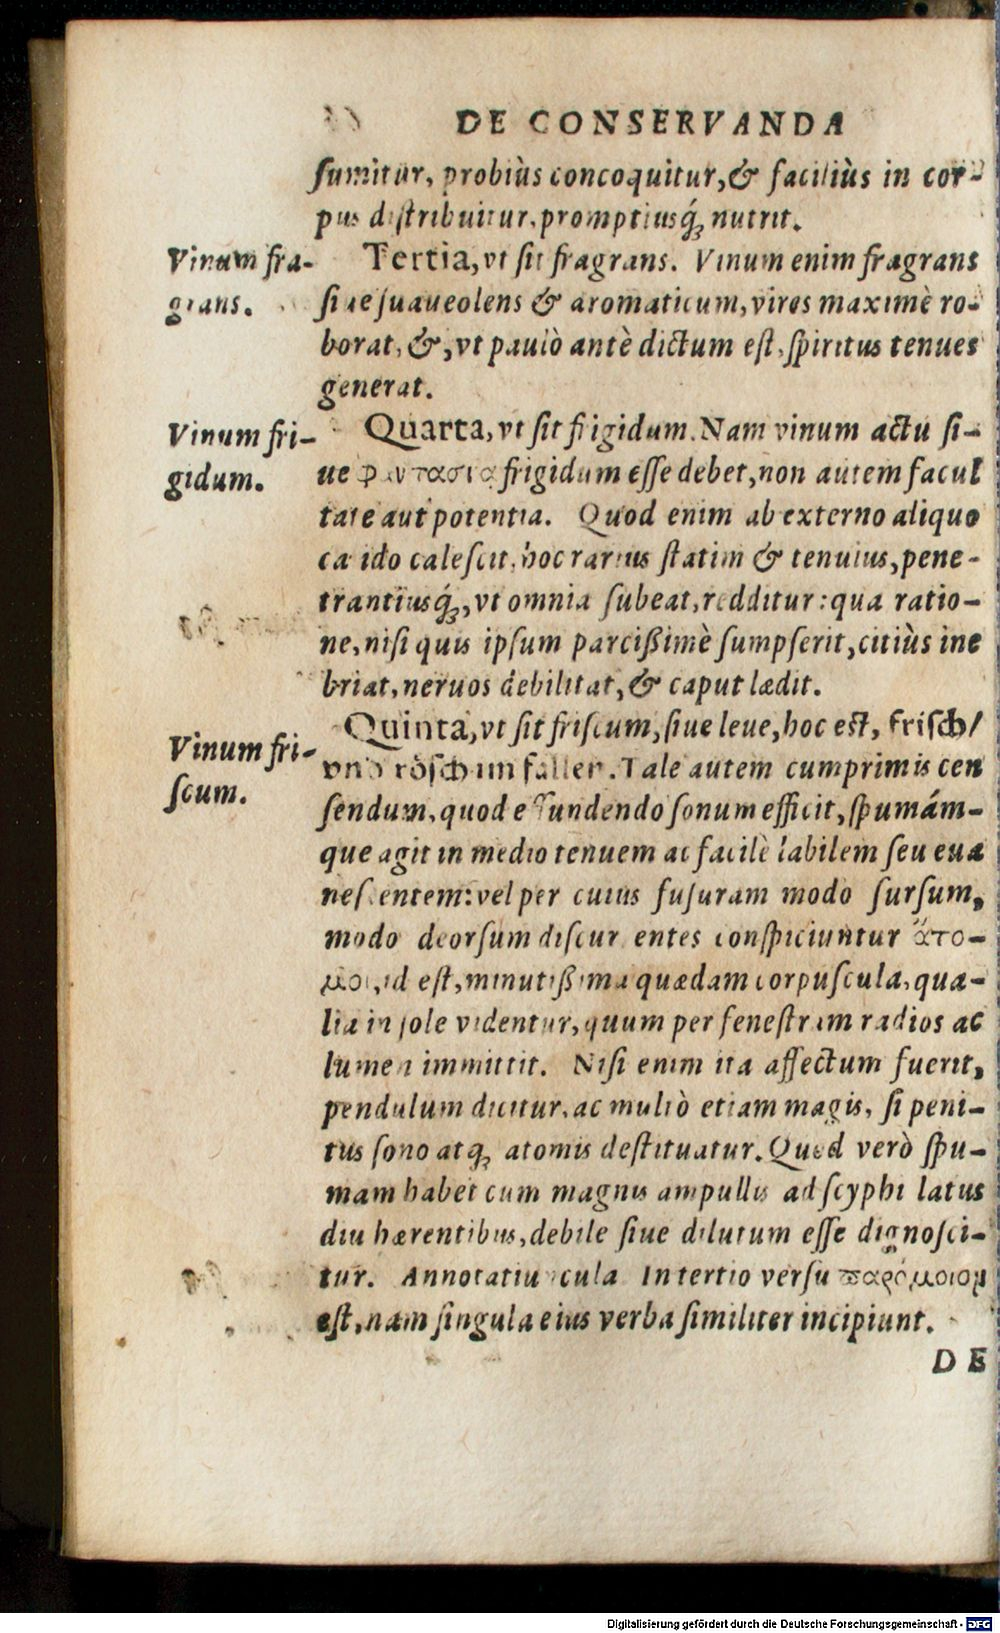 DE CONSERVANDA
sumitur, probiùs concoquitur, & faciliùs in cor-
pus distribuitur, promptiusq́; nutrit.
Vinum fra-
grans.
Tertia, vt sit fragrans. Vinum enim fragrans
siue suaueolens & aromaticum, vires maximè ro-
borat, &, vt paulò antè dictum est, spiritus tenues
generat.
Vinum fri-
gidum.
Quarta, vt sit frigidum. Nam vinum actu si-
ue φαντασια frigidum esse debet, non autem facul
tate aut potentia. Quod enim ab externo aliquo
calido calescit, hoc rarius statim & tenuius, pene-
trantiusq́;, vt omnia subeat, redditur: qua ratio-
ne, nisi quis ipsum parcißimè sumpserit, citiùs ine
briat, neruos debilitat, & caput lædit.
Vinum fri-
scum.
Quinta, vt sit friscum, siue leue, hoc est, frisch/
vnd rösch im fallen. Tale autem cumprimis cen
sendum, quod effundendo sonum efficit, spumám-
que agit in medio tenuem ac facilè labilem seu eua
nescentem: vel per cuius fusuram modo sursum,
modo deorsum discurrentes conspiciuntur ἄτο-
μοι, id est, minutißima quædam corpuscula, qua-
lia in sole videntur, quum per fenestram radios ac
lumen immittit. Nisi enim ita affectum fuerit,
pendulum dicitur, ac multò etiam magis, si peni-
tus sono atq; atomis destituatur. Quod verò spu-
mam habet cum magnis ampullis ad scyphi latus
diu hærentibus, debile siue dilutum esse dignosci-
tur. Annotatiuncula In tertio versu παρόμοιον
est, nam singula eius verba similiter incipiunt.
DE
Digitalisierung gefördert durch die Deutsche Forschungsgemeinschaft - DFG